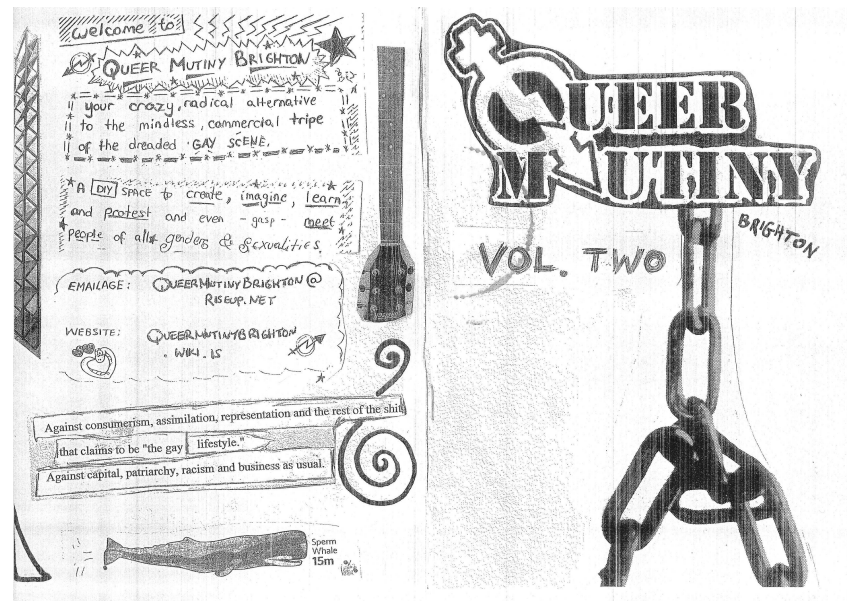 welcome to:
QUEER MUTINY BRIGHTON
your crazy, radical alternative
to the mindless, commercial tripe
of the dreaded GAY SCENE.
A DIY SPACE to create, imagine, learn
and protest and even - gasp - meet
people of all genders & sexualities.
EMAILAGE: QUEERMUTINYBRIGHTON@
RISEUP.NET
WEBSITE: QUEERMUTINYBRIGHTON
.WIKI.IS
Against consumerism, assimilation, representation and the rest of the shit
that claims to be "the gay lifestyle."
Against capital, patriarchy, racism and business as usual.
Sperm
Whale
15m
QUEER
MUTINY
BRIGHTON
VOL. TWO